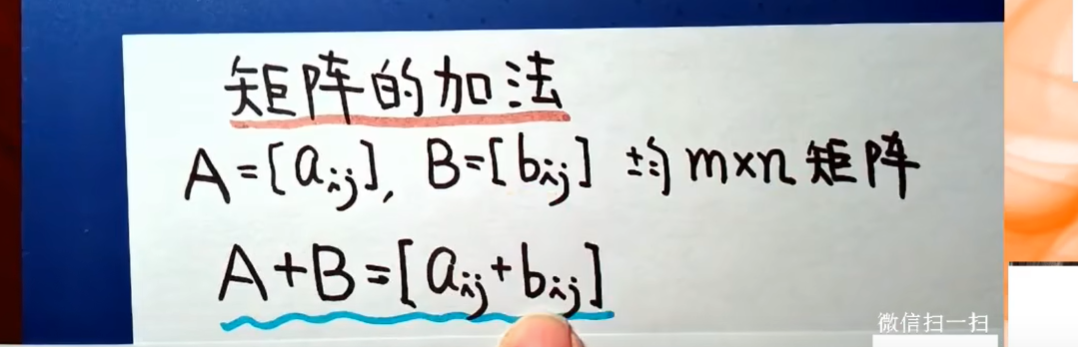 矩阵的加法
A=[aij], B=[bij] 均m×n矩阵
A+B=[aij+bij]
微信扫一扫